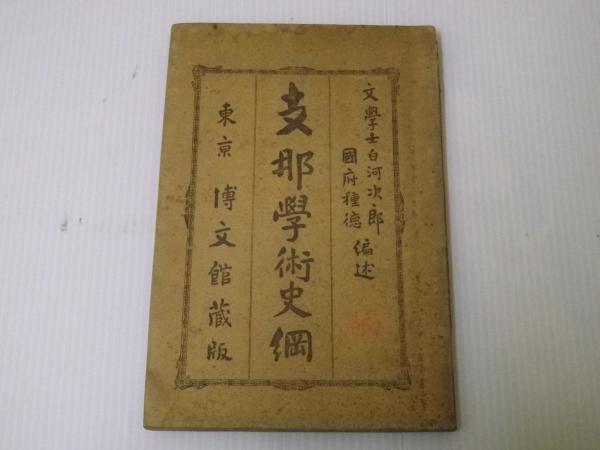 文學士白河次郎
國府種德 編述
支那學術史綱
東京 博文館藏版